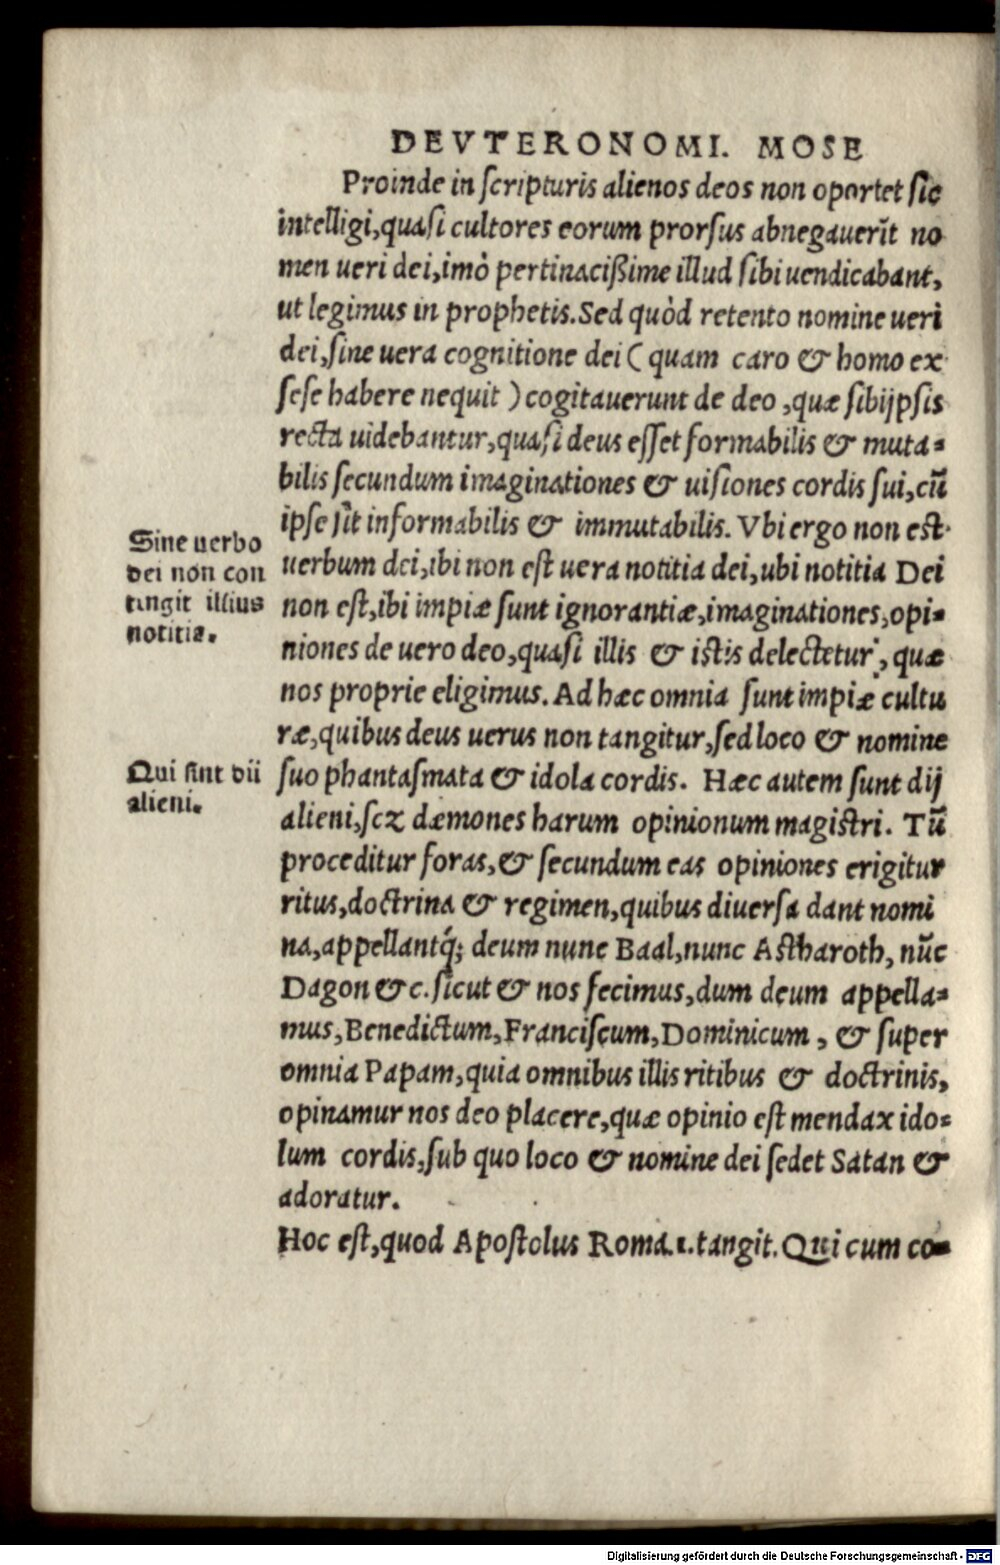 DEVTERONOMI. MOSE
Proinde in ſcripturis alienos deos non oportet ſic
intelligi,quaſi cultores eorum prorſus abnegauerīt no
men ueri dei,imò pertinacißime illud ſibi uendicabant,
ut legimus in prophetis.Sed quòd retento nomine ueri
dei,ſine uera cognitione dei ( quam caro & homo ex
ſeſe habere nequit ) cogitauerunt de deo ,quæ ſibijpſis
recta uidebantur,quaſi deus eſſet formabilis & muta-
bilis ſecundum imaginationes & uiſiones cordis ſui,cū
ipſe ſit informabilis & immutabilis. Vbi ergo non est
uerbum dei,ibi non eſt uera notitia dei,ubi notitia Dei
non eſt,ibi impiæ ſunt ignorantiæ,imaginationes,opi-
niones de uero deo,quaſi illis & istis delectetur, quæ
nos proprie eligimus. Ad hæc omnia ſunt impiæ cultu
ræ,quibus deus uerus non tangitur,ſed loco & nomine
ſuo phantaſmata & idola cordis. Hæc autem ſunt dij
alieni,ſcz dæmones harum opinionum magiſtri. Tū
proceditur foras,& ſecundum eas opiniones erigitur
ritus,doctrina & regimen,quibus diuerſa dant nomi
na,appellantq́; deum nunc Baal,nunc Astharoth, nūc
Dagon &c.ſicut & nos fecimus,dum deum appella-
mus,Benedictum,Franciſcum,Dominicum , & ſuper
omnia Papam,quia omnibus illis ritibus & doctrinis,
opinamur nos deo placere,quæ opinio eſt mendax ido-
lum cordis,ſub quo loco & nomine dei ſedet Satan &
adoratur.
Hoc eſt,quod Apoſtolus Roma.1.tangit. Qui cum co-
Sine uerbo
dei non con
tingit illius
notitia.
Qui ſint dii
alieni.
Digitalisierung gefördert durch die Deutsche Forschungsgemeinschaft - DFG